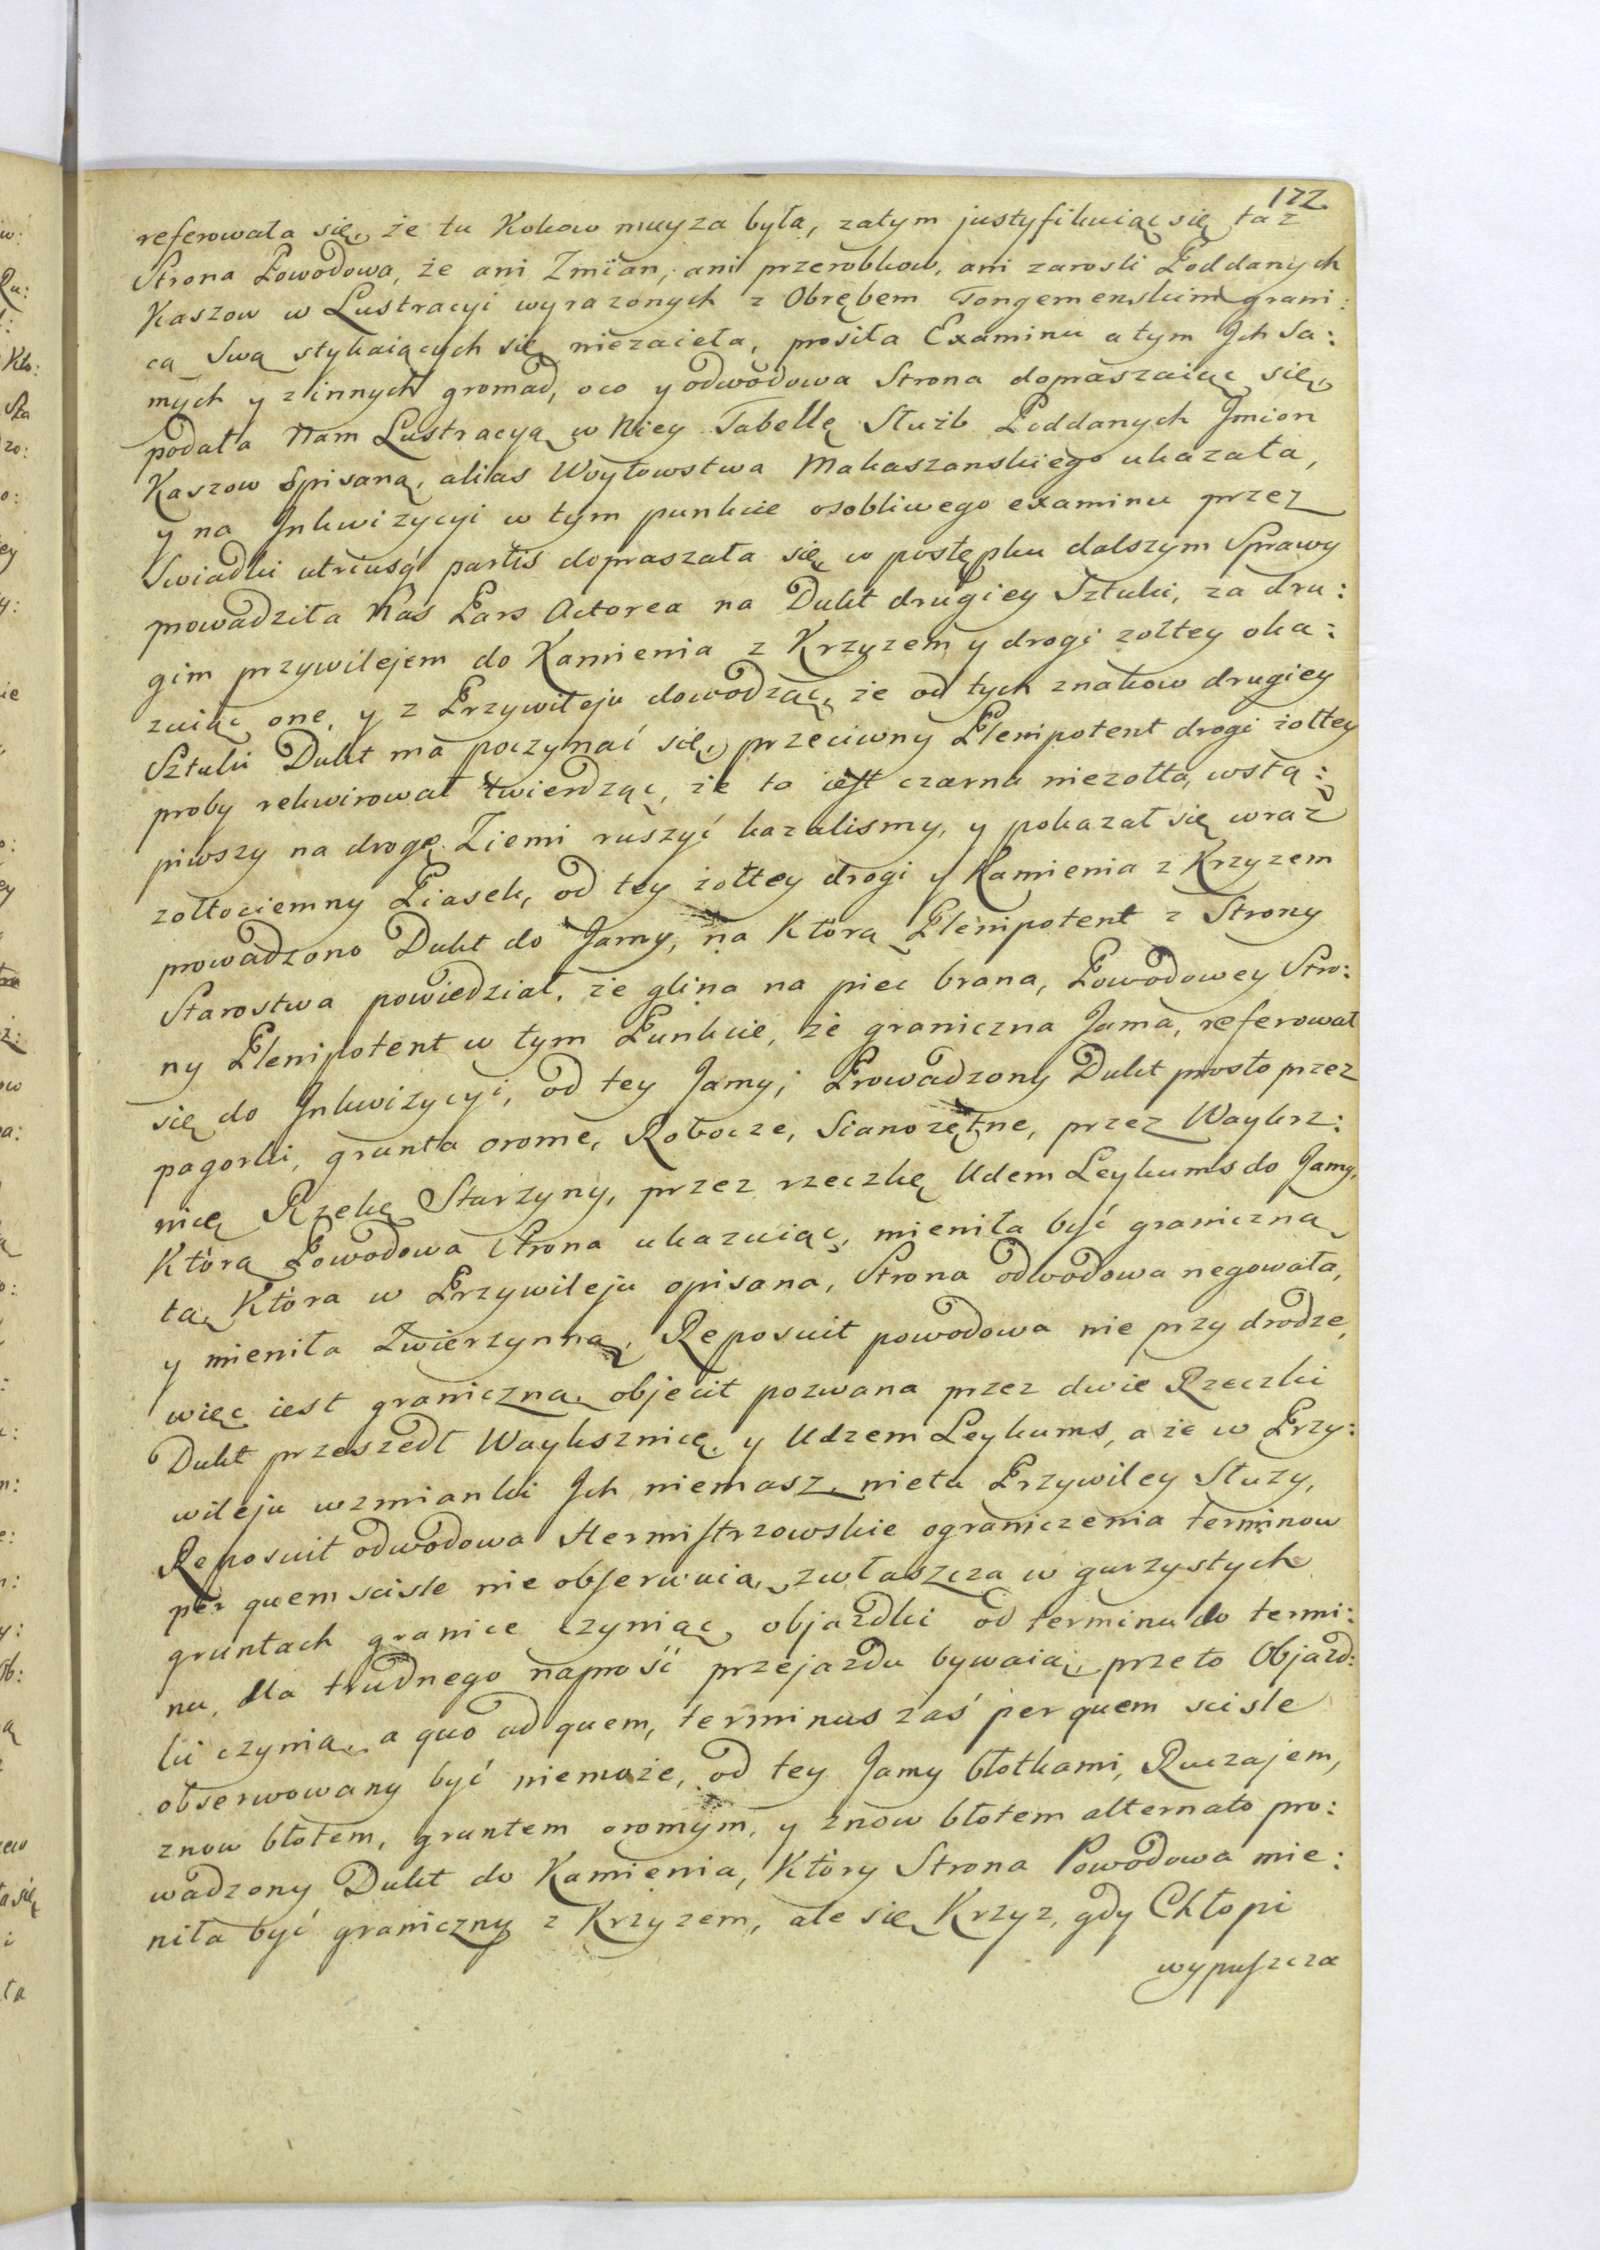 172
referowała się, że tu Kokow muyza była, zatym justyfikuiąc się taż
Strona Powodowa, że ani Zmian, ani przerobkow, ani zarosli Poddanych
Kaszow w Lustracyi wyrazonych z Obrębem Tongemenskim grani:
cą Swą stykaiących się niezaieła, prosiła Examinu a tym Jch Sa:
mych y z innych gromad, oco y odwodowa Strona dopraszaiąc się,
podała Nam Lustracyą w Niey Tabellę Służb Poddanych Jmion
Kaszow Spisaną, alias Woytowstwa Makaszanskiego ukazała,
y na Jnkwizycyi w tym punkcie osobliwego examinu przez
Swiadki utriusq partis dopraszała się, w postępku dalszym Sprawy
prowadziła Nas Pars Actorea na Dukt drugiey Sztuki, za dru:
gim przywilejem do Kamienia z Krzyzem y drogi żołtey oka:
zuiąc one, y z Przywileju dowodząc, że od tych znakow drugiey
Sztuki Dukt ma poczynać się, przeciwny Plenipotent drogi żołtey
proby rekwirował twierdząc, że to iest czarna niezołta, wstą:
piwszy na drogę Ziemi ruszyć kazalismy, y pokazał się wraz
zołtociemny Piasek, od tey żołtey drogi y Kamienia z Krzyzem
prowadzono Dukt do Jamy, na Którą Plenipotent z Strony
Starostwa powiedział, że glina na piec brana, Powodowey Stro:
ny Plenipotent w tym Punkcie, że graniczna Jama, referował
się do Jnkwizycyi, od tey Jamy; Prowadzony Dukt prosto przez
pagorki, grunta orome, Robocze, Sianozętne, przez Waykrz:
nicę Rzekę Starzyny, przez rzeczkę Udem Leykums do Jamy,
Którą Powodowa Strona ukazuiąc, mieniła być graniczną
tą, Która w Przywileju opisana, Strona odwodowa negowała,
y mieniła Zwierzynną, Reposuit powodowa nie przy drodze,
więc iest graniczna, objecit pozwana przez dwie Rzeczki
Dukt przeszedł Wayksznicę, y Udzem Leykums, a że w Przy:
wileju wzmianki Jch niemasz, nietu Przywiley Służy,
Reposuit odwodowa Hermistrzowskie ograniczenia terminow
per quem scisle nie obserwuią, zwłaszcza w gurzystych
gruntach granice czyniąc, objazdki od terminu do termi:
nu, dla trudnego naprość przejazdu bywaią, przeto Objazd:
ki czynią, a quo ad quem, terminus zaś per quem scisle
obserwowany być niemoże, od tey Jamy błotkami, Ruczajem,
znow błotem, gruntem oromym, y znow błotem alternato pro:
wadzony Dukt do Kamienia, Który Strona Powodowa mie:
niła być graniczny z Krzyzem, ale się Krzyz, gdy Chłopi
wypuszcza